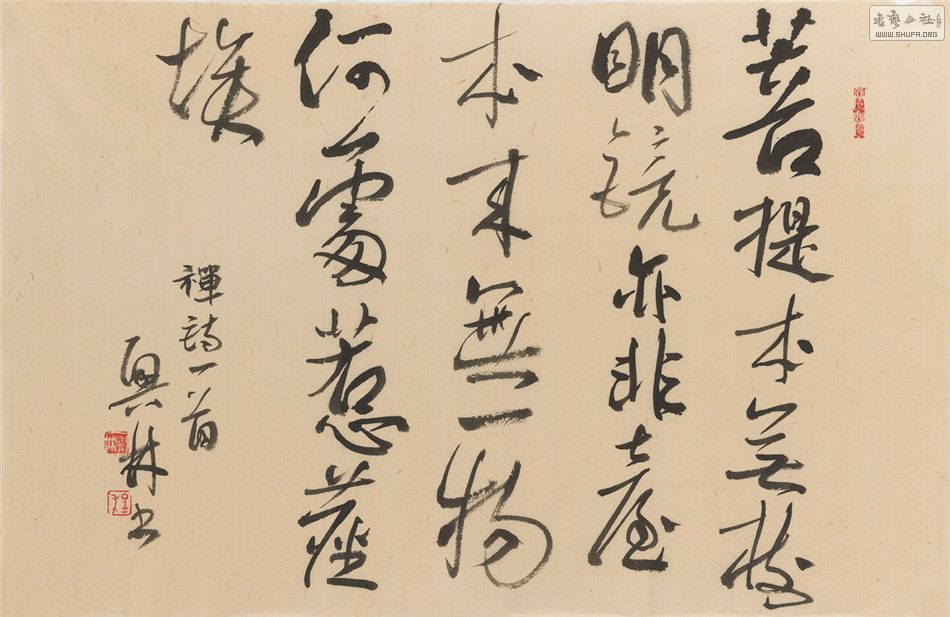 菩提本无樹
明镜亦非臺
本来無一物
何處惹塵
埃
禪詩一首
兴林书
書藝公社
WWW.SHUFA.ORG